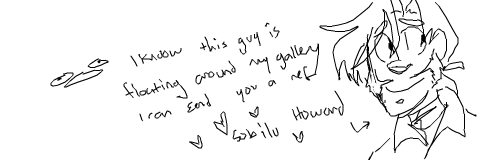 I know this guy is
floating around my gallery
I can send you a ref
Sabilu Howard